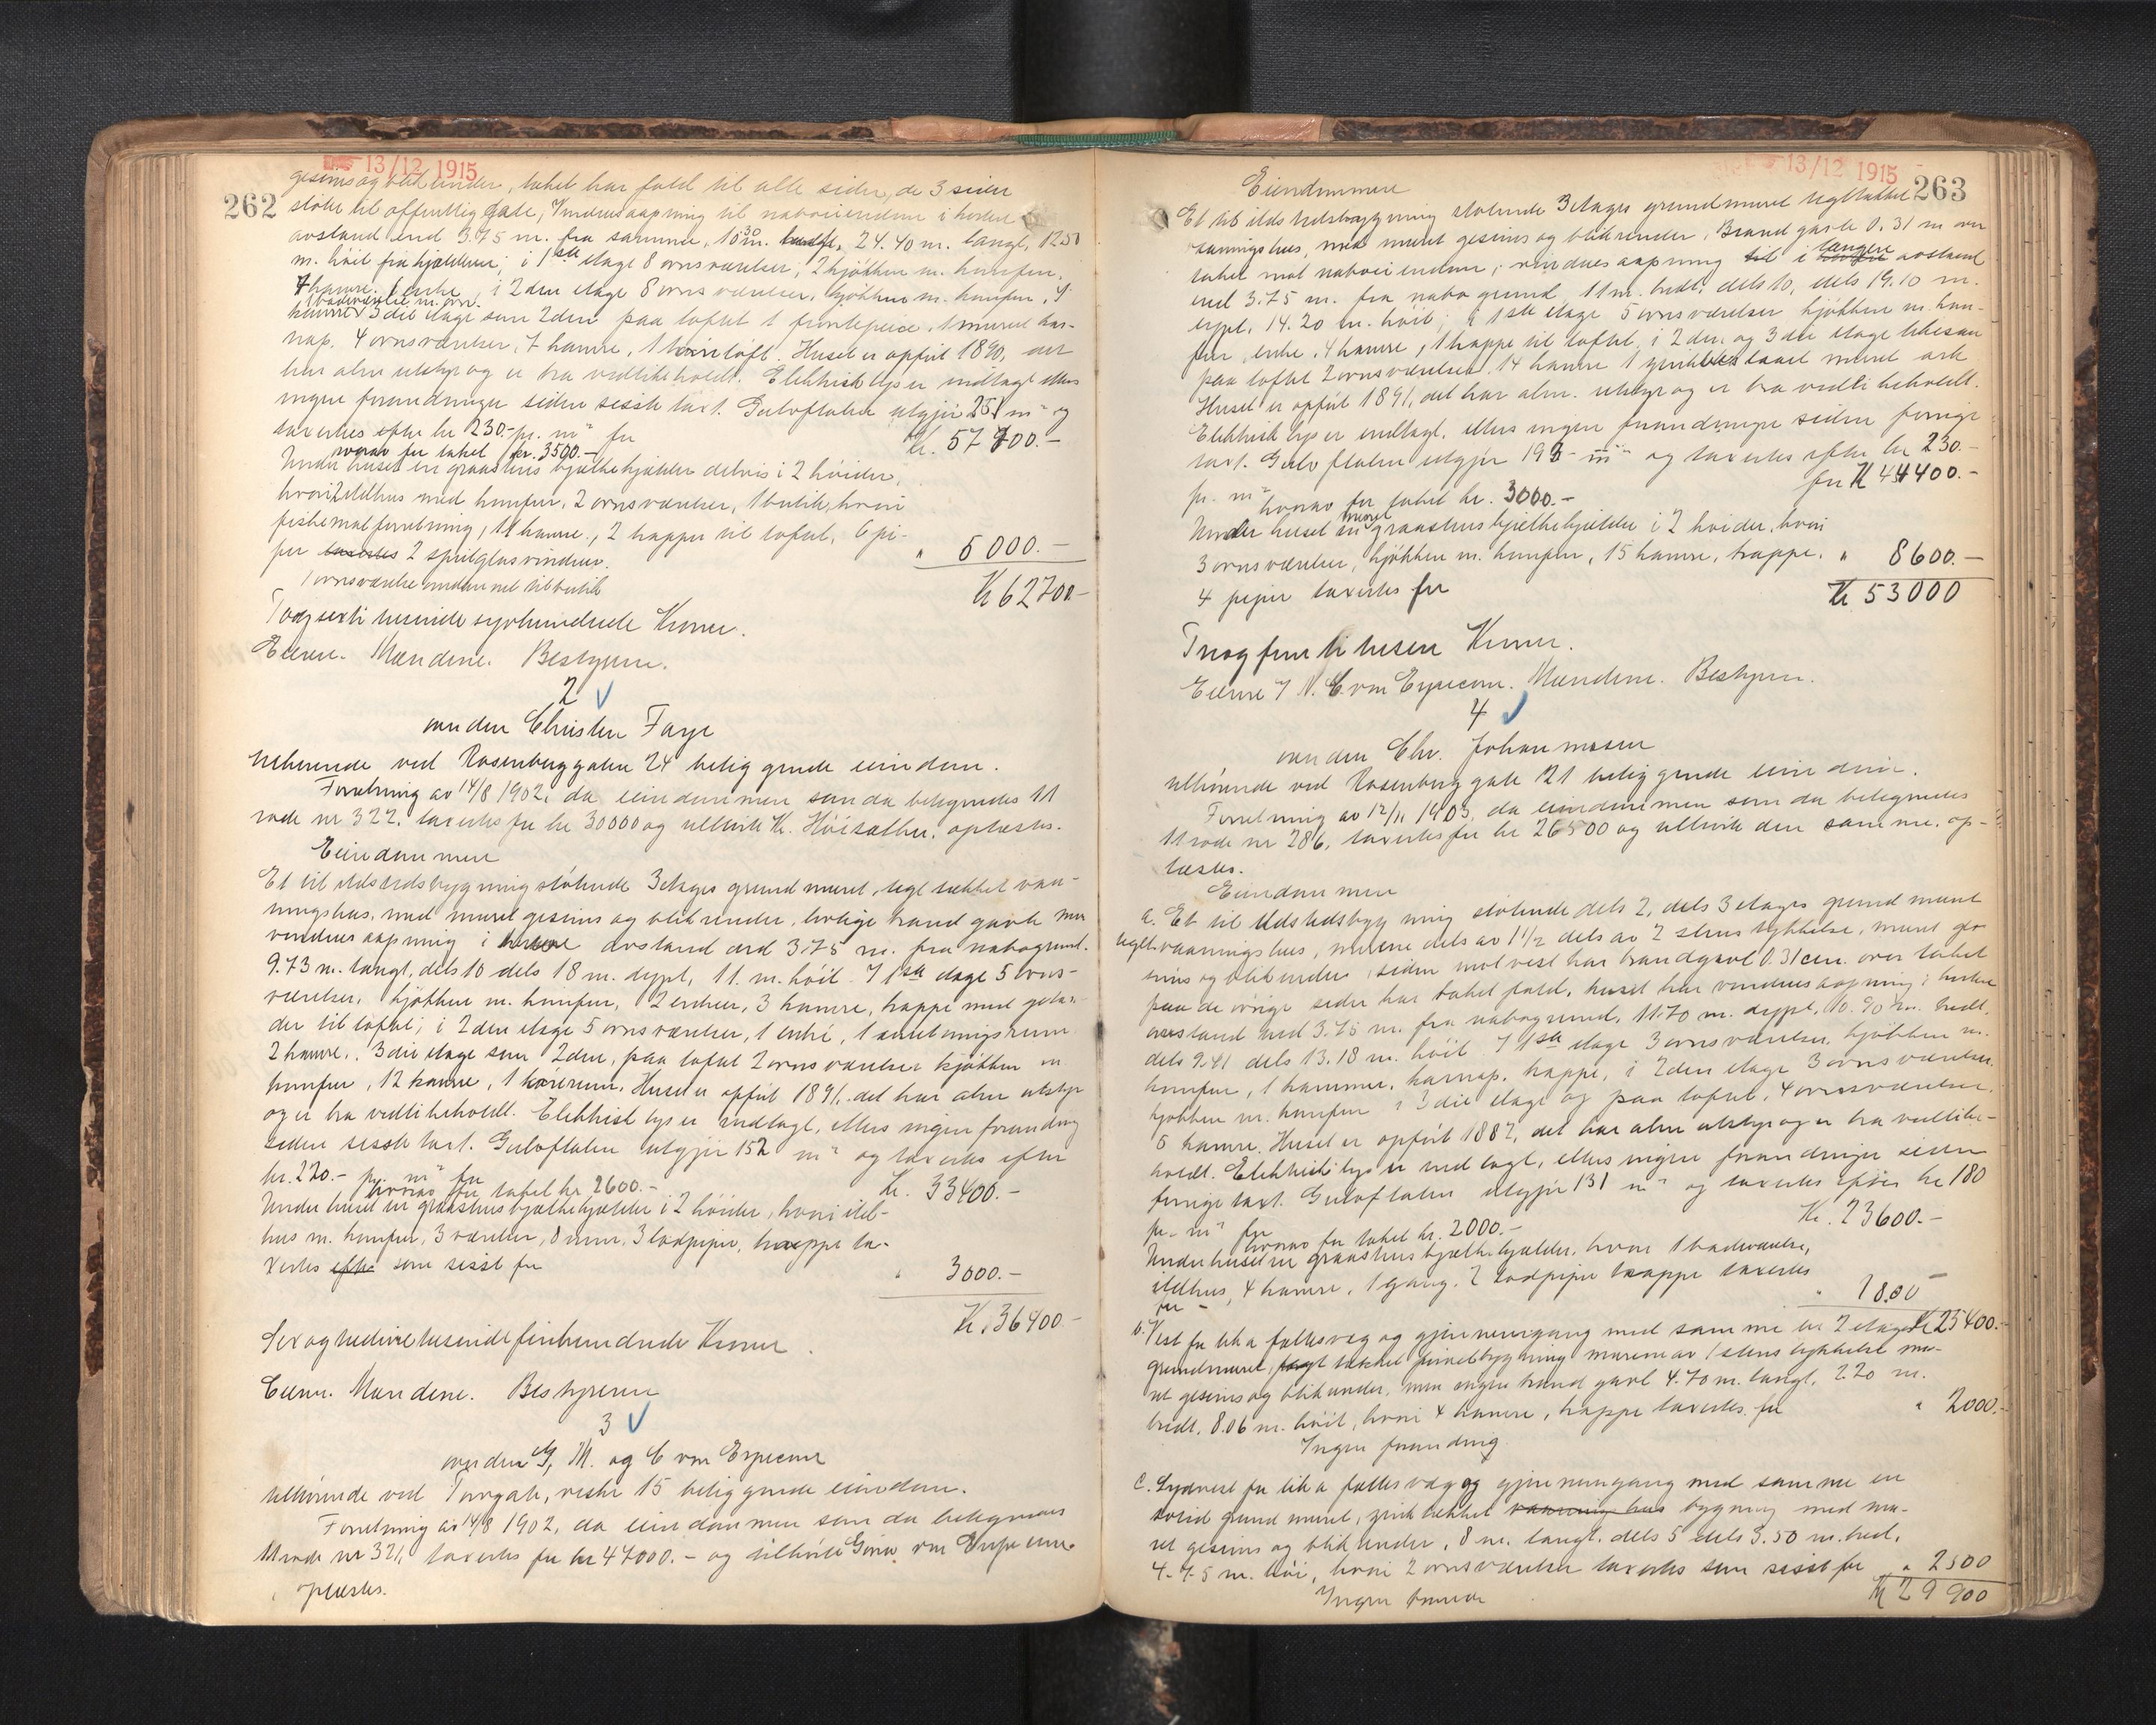 13/12 1915
262
gesims og blikrender, taket har fald til alle sider, de 3 sider
støter til offentlig gate, Vinduesaapning til naboeiendom i kortere
avstand end 3.75 m. fra samme, 10.30 m. bredt, 24.40 m. langt, 12.50
m. høit fra kjælderen; i 1ste etage 8 ovnsværelser, 2 kjøkken m. komfur,
7 kamre. 1 entre, i 2den etage 8 ovnsværelser, kjøkken m. komfur, 9
1 badeværelse m. ovn.
kamre 3die etage som 2den paa loftet 1 frontspice, 1 muret kar-
nap. 4 ovnsværelser, 7 kamre, 1 tørreloft. Huset er opført 1890, det
har alm utstyr og er bra vedlikeholdt. Elektrisk lys er indlagt ellers
ingen forandringer siden sidste taxt. Gulvflaten utgjør 251 m² og
taxertes efter kr 230.- pr. m² for Kr. 57700.-
hvorav for taket kr. 3500.-
Under huset er graastens bjælkekjælder delvis i 2 høider,
hvori ildhus med komfur, 2 ovnsværelser, 1 butik, hvori
fiskematforretning, 11 kamre, 2 trapper til loftet, 6 pi-
per taxertes 2 speilglasvinduer. " 5000.-
1 ovnsværelse omdannet til butik
Kr 62700.-
Toogseksti tusinde syvhundrede Kroner.
Eieren. Mændene. Bestyreren.
2
over den Christen Faye
tilhørende ved Rosenberggaten 24 beliggende eiendom.
Forretning av 14/8 1902, da eiendommen som da betegnedes 11
rode nr 322. taxertes for kr 30000 og tilhørte K. Höisæther, oplæstes.
Eiendommen
Et til ildstedsbygning støtende 3 etages grundmuret, tegl tækket vaa-
ningshus, med muret gesims og blikrender, lovlige brand gavle mur
vinduesaapning i kortere avstand end 3.75 m. fra nabogrund.
9.73 m. langt, dels 10 dels 18 m. dypt, 11. m. høit. I 1ste etage 5 ovns-
værelser, kjøkken m. komfur, 2 entreer, 3 kamre, trappe med gelæn-
der til loftet; i 2den etage 5 ovnsværelser, 1 entré, 1
2 kamre, 3die etage som 2den, paa loftet 2 ovnsværelser kjøkken m
komfur, 12 kamre, 1 tørrerum. Huset er opført 1891. det har alm utstyr
og er bra vedlikeholdt. Elektrisk lys er indlagt, ellers ingen forandring
siden sidste taxt. Gulvflaten utgjør 152 m² og taxertes efter
kr. 220.- pr. m² for Kr. 33400.-
hvorav for taket kr 2600.-
Under huset er graastens bjælkekjælder i 2 høider, hvori ild-
hus m. komfur, 3 værelser, 8 rum. 3 lodpiper, trappe ta-
xertes efter som sidst for " 3000.-
Kr. 36400.-
Sexogtredive tusinde firehundrede Kroner.
Eieren. Mændene. Bestyreren
3
over den G, M. og C von Erpecom
tilhørende ved Torvgate, vestre 15 beliggende eiendom.
Forretning av 14/8 1902, da eiendommen som da betegnedes
11 rode nr 321, taxertes for kr 47000.- og tilhørte von Erpecom
oplæstes.
13/12 1915
263
Eiendommen
Et til ildstedsbygning støtende 3 etages grundmuret tegltækket
vaaningshus, med muret gesims og blikrender, Brand gavle 0.31 m over
taket mot naboeiendom, vinduesaapning til i længere avstand
end 3.75 m. fra nabogrund 11 m. bredt, dels 10, dels 19.10 m.
dypt, 14.20 m. høit; i 1ste etage 5 ovnsværelser kjøkken m. kom-
fur, entre, 4 kamre, 1 trappe til loftet, i 2den og 3die etage likesaa
paa loftet 2 ovnsværelser, 14 kamre 1 muret ark
Huset er opført 1891, det har alm. utstyr og er bra vedlikeholdt.
Elektrisk lys er indlagt. ellers ingen forandringer siden forrige
taxt. Gulvflaten utgjør 193 m² og taxertes efter kr 230.-
pr. m² for Kr 44400.-
hvorav for taket kr. 3000.-
Under huset en muret graastens bjælkekjælder i 2 høider, hvori
3 ovnsværelser, kjøkken m. komfur, 15 kamre, trappe, " 8600.-
4 piper taxertes for Kr 53000
Treogfemti tusen Kroner.
Eierne v N. C. von Erpecom. Mændene. Bestyreren.
4
over den Chr. Johannesen
tilhørende ved Rosenberggate 21 beliggende eiendom.
Forretning av 12/11 1903, da eiendommen som da betegnedes
11 rode nr 286, taxertes for kr 26500 og tilhørte den samme, op-
læstes.
Eiendommen
a. Et til ildstedsbygning støtende dels 2, dels 3 etages grundmuret
teglt. vaaningshus, murene dels av 1 1/2 dels av 2 stens tykkelse, muret ge-
sims og blikrender, siden mot vest har brandgavl 0.31 cm. over taket
paa de øvrige sider har taket fald, huset har vinduesaapning i kortere
avstand end 3.75 m. fra nabogrund, 11.70 m. dypt, 10.90 m. bredt,
dels 9.41 dels 13.18 m. høit I 1ste etage 3 ovnsværelser, kjøkken m.
komfur, 1 kammer, karnap, trappe, i 2den etage 3 ovnsværelser
kjøkken m. komfur i 3die etage og paa loftet, 4 ovnsværelser,
5 kamre. Huset er opført 1887, det har alm utstyr og er bra vedlike-
holdt. Elektrisk lys er indlagt, ellers ingen forandringer siden
forrige taxt. Gulvflaten utgjør 131 m² og taxertes efter kr 180
pr. m² for Kr. 23600.-
hvorav for taket kr. 2000.-
Under huset er graastens bjælkekjælder, hvori 1 badeværelse,
ildhus, 4 kamre, 1 gang. 2 lodpiper trappe taxertes
for - " 1800
b. Vest for lit a fællesvæg og gjennemgang med samme er 2 etages Kr 25400.-
grundmuret, tækket bygning murene av 1 stens tykkelse mu-
ret gesims og blikrender, men ingen brand gavl 4.70 m. langt, 2.20 m.
bredt, 8.06 m. høit, hvori 4 kamre, trappe taxertes for " 2000.-
Ingen forandring
c. Sydvest for lit a fællesvæg og gjennemgang med samme en
grund muret, zink tækket vaanings hus bygning med mu-
ret gesims og blikrender, 8 m. langt, dels 5 dels 3.50 m. bred,
4.45 m. høi, hvori 2 ovnsværelser taxertes som sidst for " 2500
Ingen Kr 29900